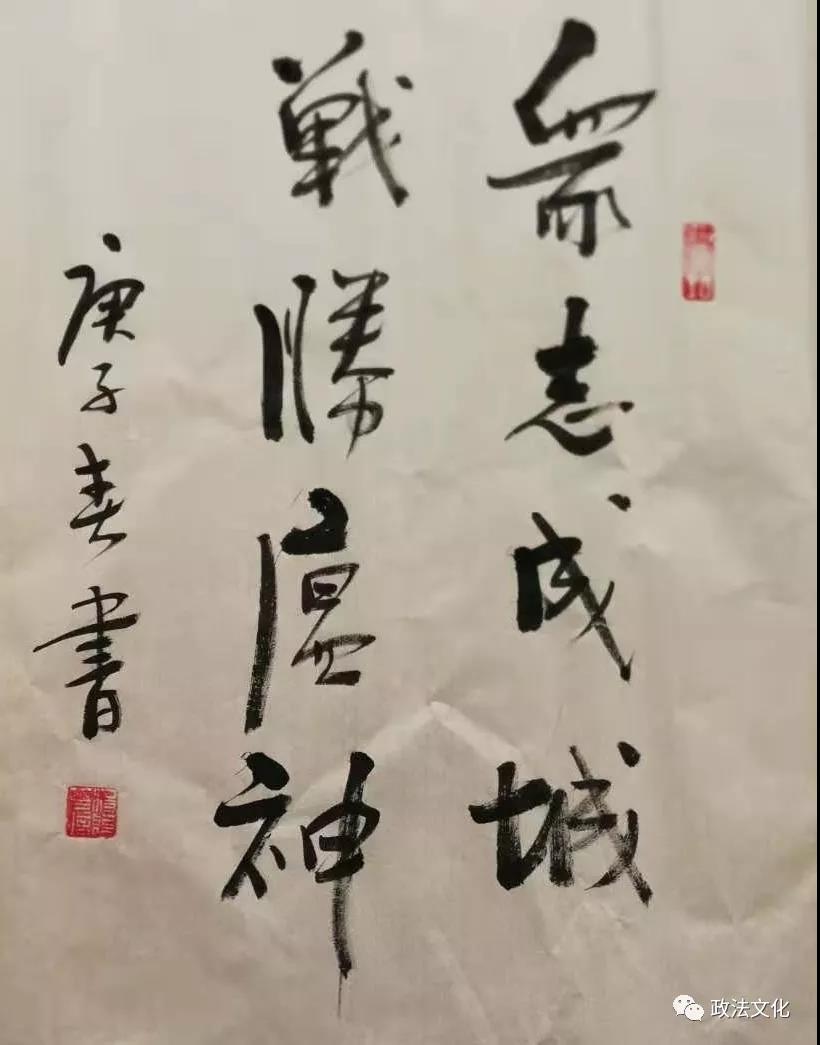 眾志成城
戰勝瘟神
庚子春書
政法文化